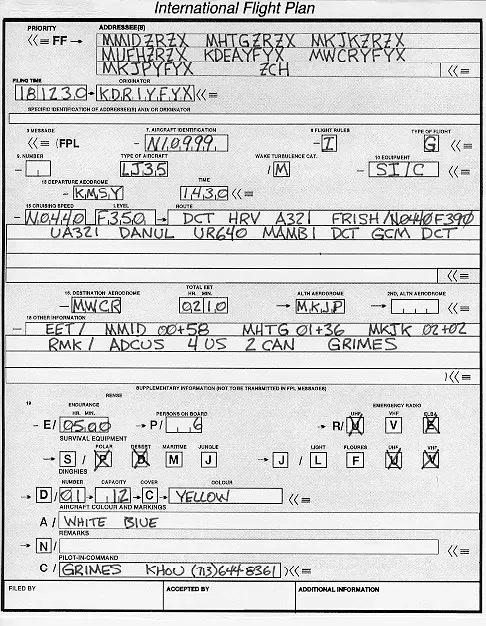 International Flight Plan
PRIORITY ADDRESSEE(S)
<<≡ FF → MMIDZRZX MHTGZRZX MKJKZRZX
MUFHZRZX KDEAYFYX MWCRYFYX
MKJPYFYX ZCH <<≡
FILING TIME ORIGINATOR
181230 → KDRIYFYX <<≡
SPECIFIC IDENTIFICATION OF ADDRESSEE(S) AND/OR ORIGINATOR
3 MESSAGE 7. AIRCRAFT IDENTIFICATION 8 FLIGHT RULES TYPE OF FLIGHT
<<≡ (FPL – N10999 – I G <<≡
9. NUMBER TYPE OF AIRCRAFT WAKE TURBULENCE CAT. 10 EQUIPMENT
– LJ35 / M – SI/C <<≡
13 DEPARTURE AEODROME TIME
– KMSY 1430 <<≡
15 CRUISING SPEED LEVEL ROUTE
– N0440 F350 → DCT HRV A321 FRISH/N0440F390
UA321 DANUL UR640 MAMBI DCT GCM DCT
<<≡
TOTAL EET
16. DESTINATION AERODROME HR. MIN. ALTN AERODROME 2ND, ALTN AERODROME
– MWCR 0210 → MKJP → <<≡
18 OTHER INFORMATION
– EET/ MMID 00+58 MHTG 01+36 MKJK 02+02
RMK/ ADCUS 4 US 2 CAN GRIMES
)<<≡
SUPPLEMENTARY INFORMATION (NOT TO BE TRANSMITTED IN FPL MESSAGES)
RENSE
19 ENDURANCE EMERGENCY RADIO
HR. MIN. PERSONS ON BOARD UHF VHF ELBA
– E/ 0500 → P/ 6 → R/ U V E
SURVIVAL EQUIPMENT
POLAR DESERT MARITIME JUNGLE LIGHT FLOURES UHF VHF
→ S / P D M J → J / L F U V
DINGHIES
NUMBER CAPACITY COVER COLOUR
→ D / 01 12 → C → YELLOW <<≡
AIRCRAFT COLOUR AND MARKINGS
A / WHITE BLUE
REMARKS
→ N / <<≡
PILOT-IN-COMMAND
C / GRIMES KHOU (713)644-8361 )<<≡
FILED BY ACCEPTED BY ADDITIONAL INFORMATION